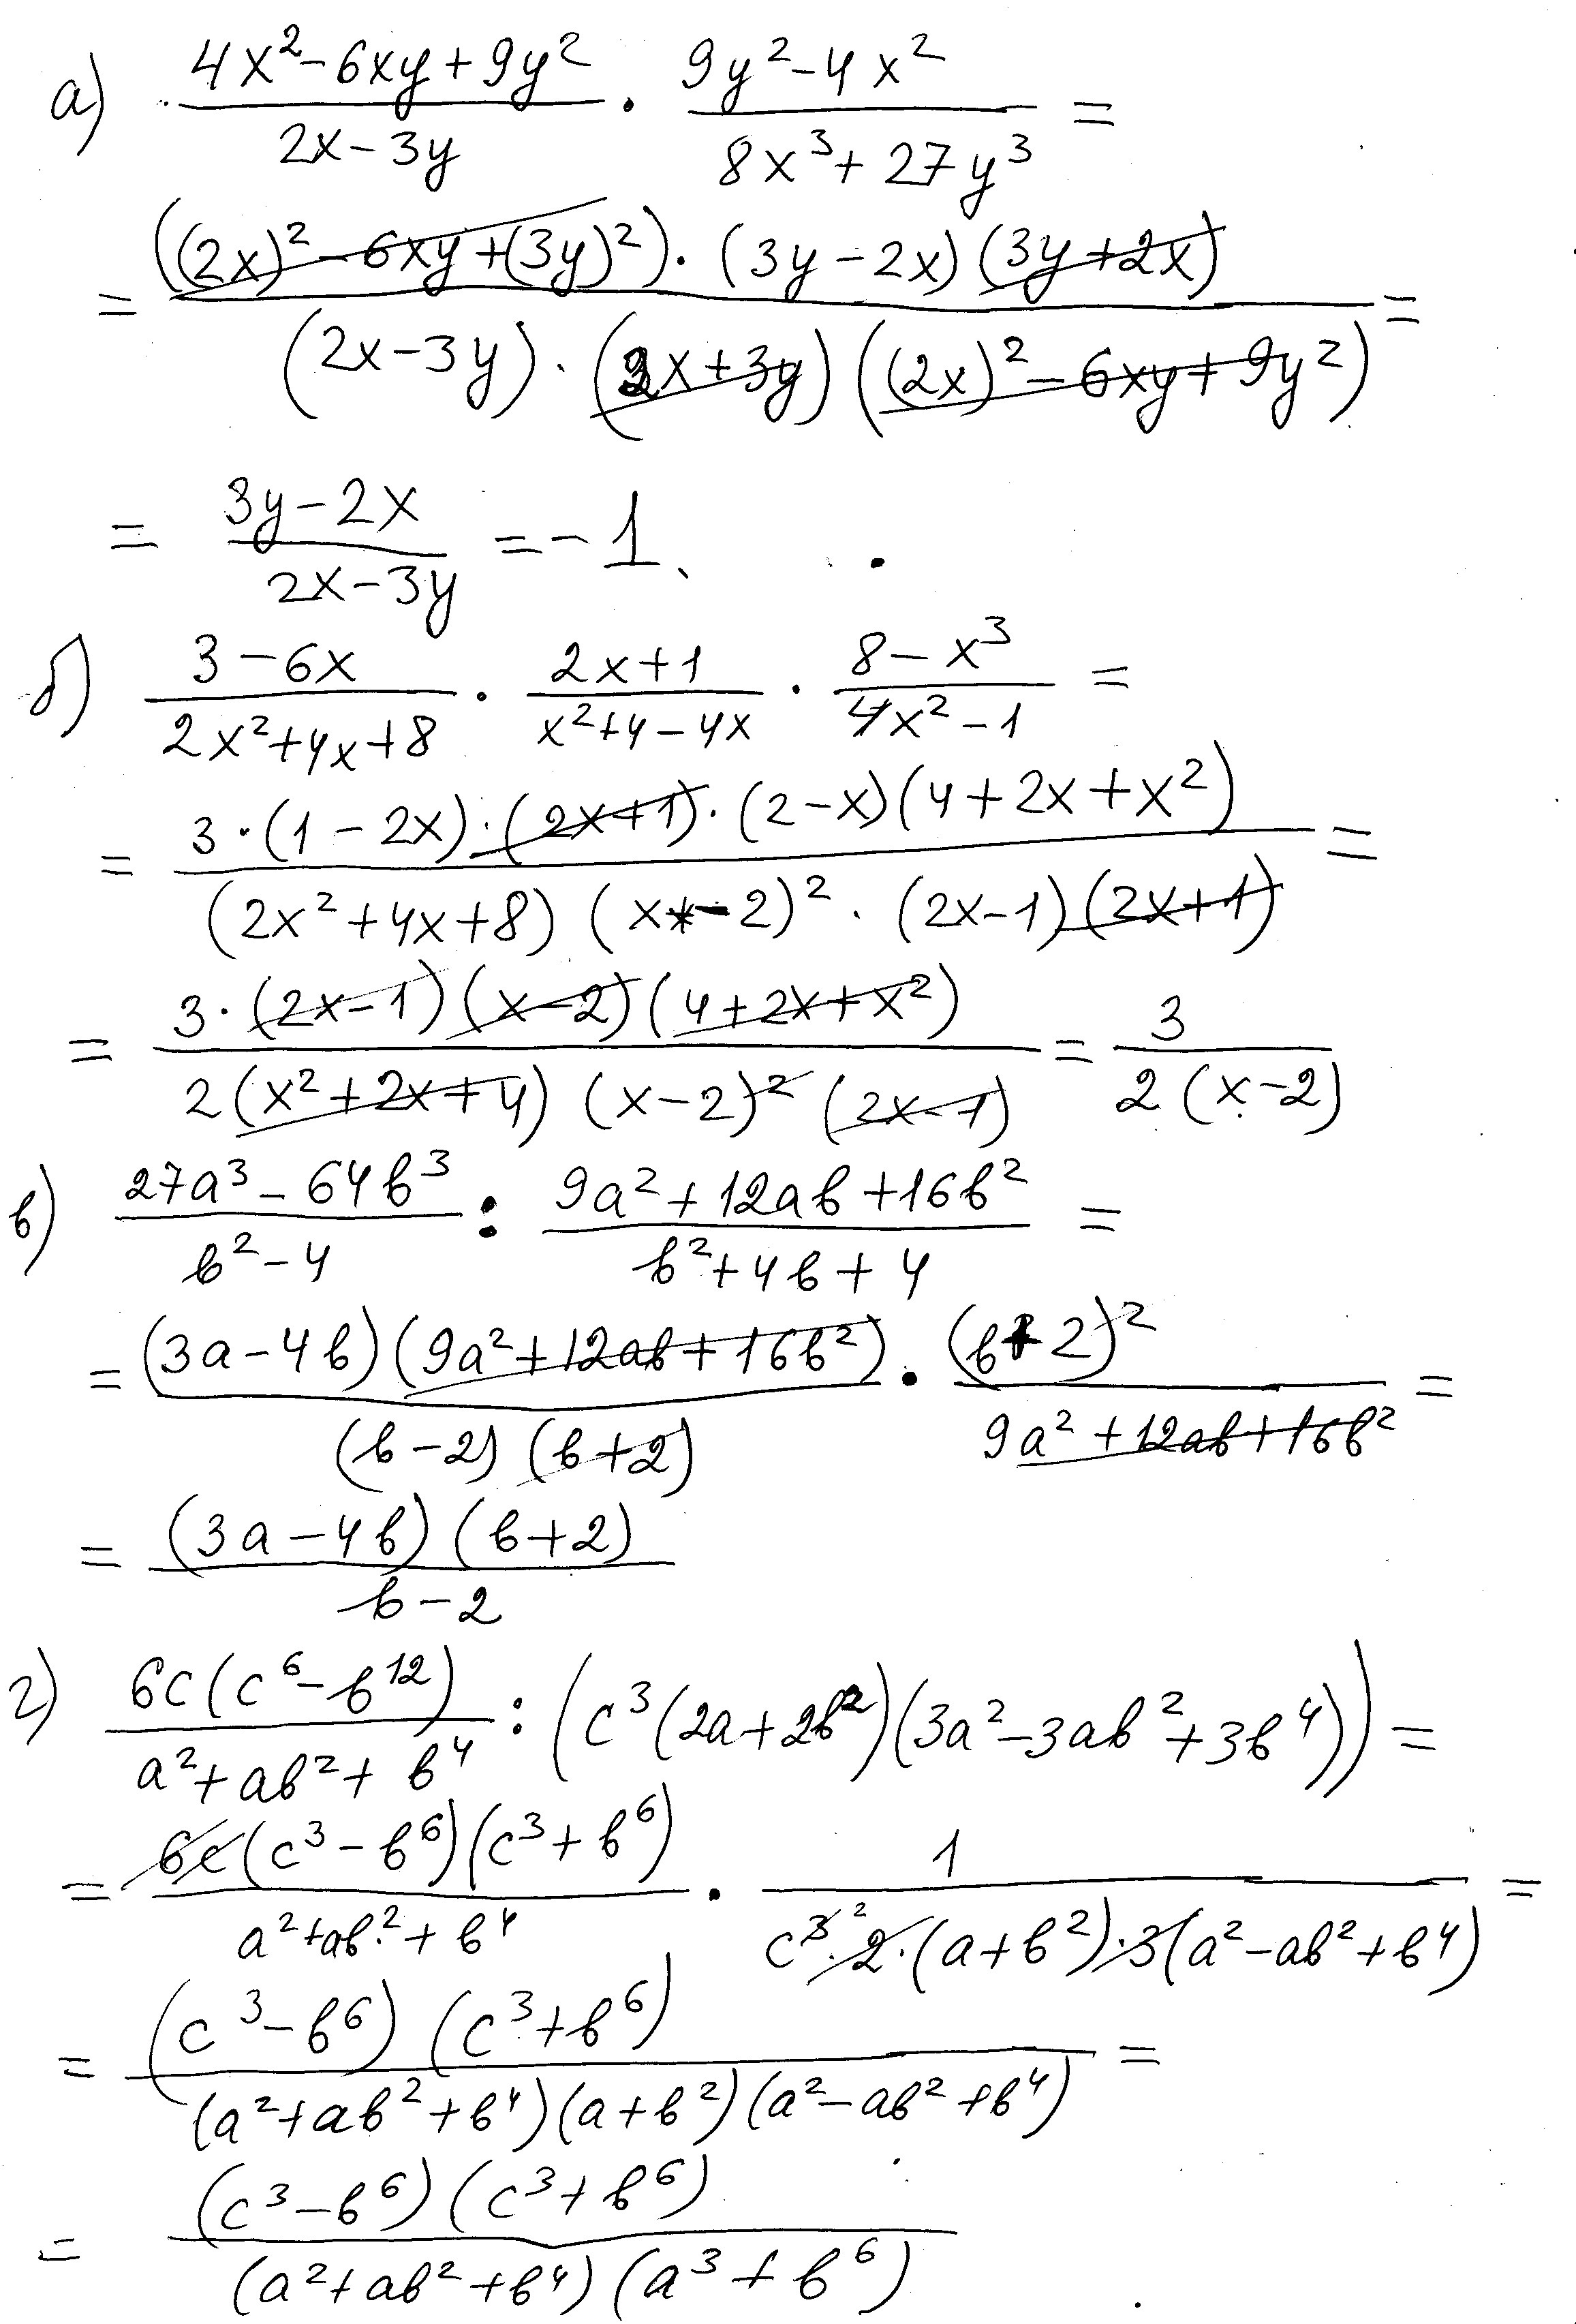 а) (4x² - 6xy + 9y²)/(2x - 3y) · (9y² - 4x²)/(8x³ + 27y³) =
= (((2x)² - 6xy + (3y)²) · (3y - 2x)(3y + 2x))/((2x - 3y) · (2x + 3y)((2x)² - 6xy + 9y²)) =
= (3y - 2x)/(2x - 3y) = -1.
б) (3 - 6x)/(2x² + 4x + 8) · (2x + 1)/(x² + 4 - 4x) · (8 - x³)/(4x² - 1) =
= (3 · (1 - 2x) · (2x + 1) · (2 - x)(4 + 2x + x²))/((2x² + 4x + 8)(x - 2)² · (2x - 1)(2x + 1)) =
= (3 · (2x - 1)(x - 2)(4 + 2x + x²))/(2(x² + 2x + 4)(x - 2)²(2x - 1)) = 3/(2(x - 2))
в) (27a³ - 64b³)/(b² - 4) : (9a² + 12ab + 16b²)/(b² + 4b + 4) =
= ((3a - 4b)(9a² + 12ab + 16b²))/((b - 2)(b + 2)) · (b + 2)²/(9a² + 12ab + 16b²) =
= ((3a - 4b)(b + 2))/(b - 2)
г) (6c(c⁶ - b¹²))/(a² + ab² + b⁴) : (c³(2a + 2b²)(3a² - 3ab² + 3b⁴)) =
= (6c(c³ - b⁶)(c³ + b⁶))/(a² + ab² + b⁴) · 1/(c³ ² · 2 · (a + b²) · 3(a² - ab² + b⁴)) =
= ((c³ - b⁶)(c³ + b⁶))/((a² + ab² + b⁴)(a + b²)(a² - ab² + b⁴)) =
= ((c³ - b⁶)(c³ + b⁶))/((a² + ab² + b⁴)(a³ + b⁶))